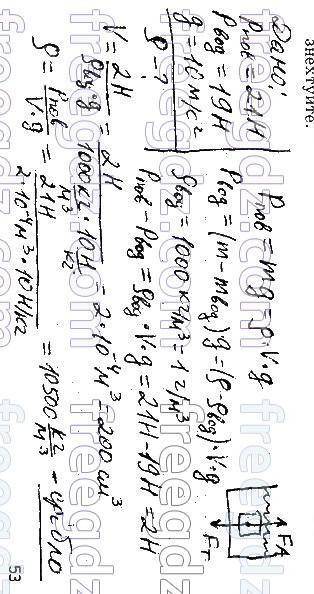 знехтуйте.
Дано:
Pпов = 21Н
Pвод = 19Н
g = 10 м/с²
ρ = ?
Pпов = mg = ρ·V·g
Pвод = (m - mвод)g = (ρ - ρвод)·V·g
ρвод = 1000 кг/м³ = 1 г/м³
Pпов - Pвод = ρвод·V·g = 21Н - 19Н = 2Н
V = 2Н / ρв·g = 2Н / (1000 кг/м³ · 10 Н/кг) = 2·10⁻⁴ м³ = 200 см³
ρ = Pпов / V·g = 21Н / (2·10⁻⁴ м³ · 10 Н/кг) = 10500 кг/м³ - срібло
FA
FT
53
freegdz.com